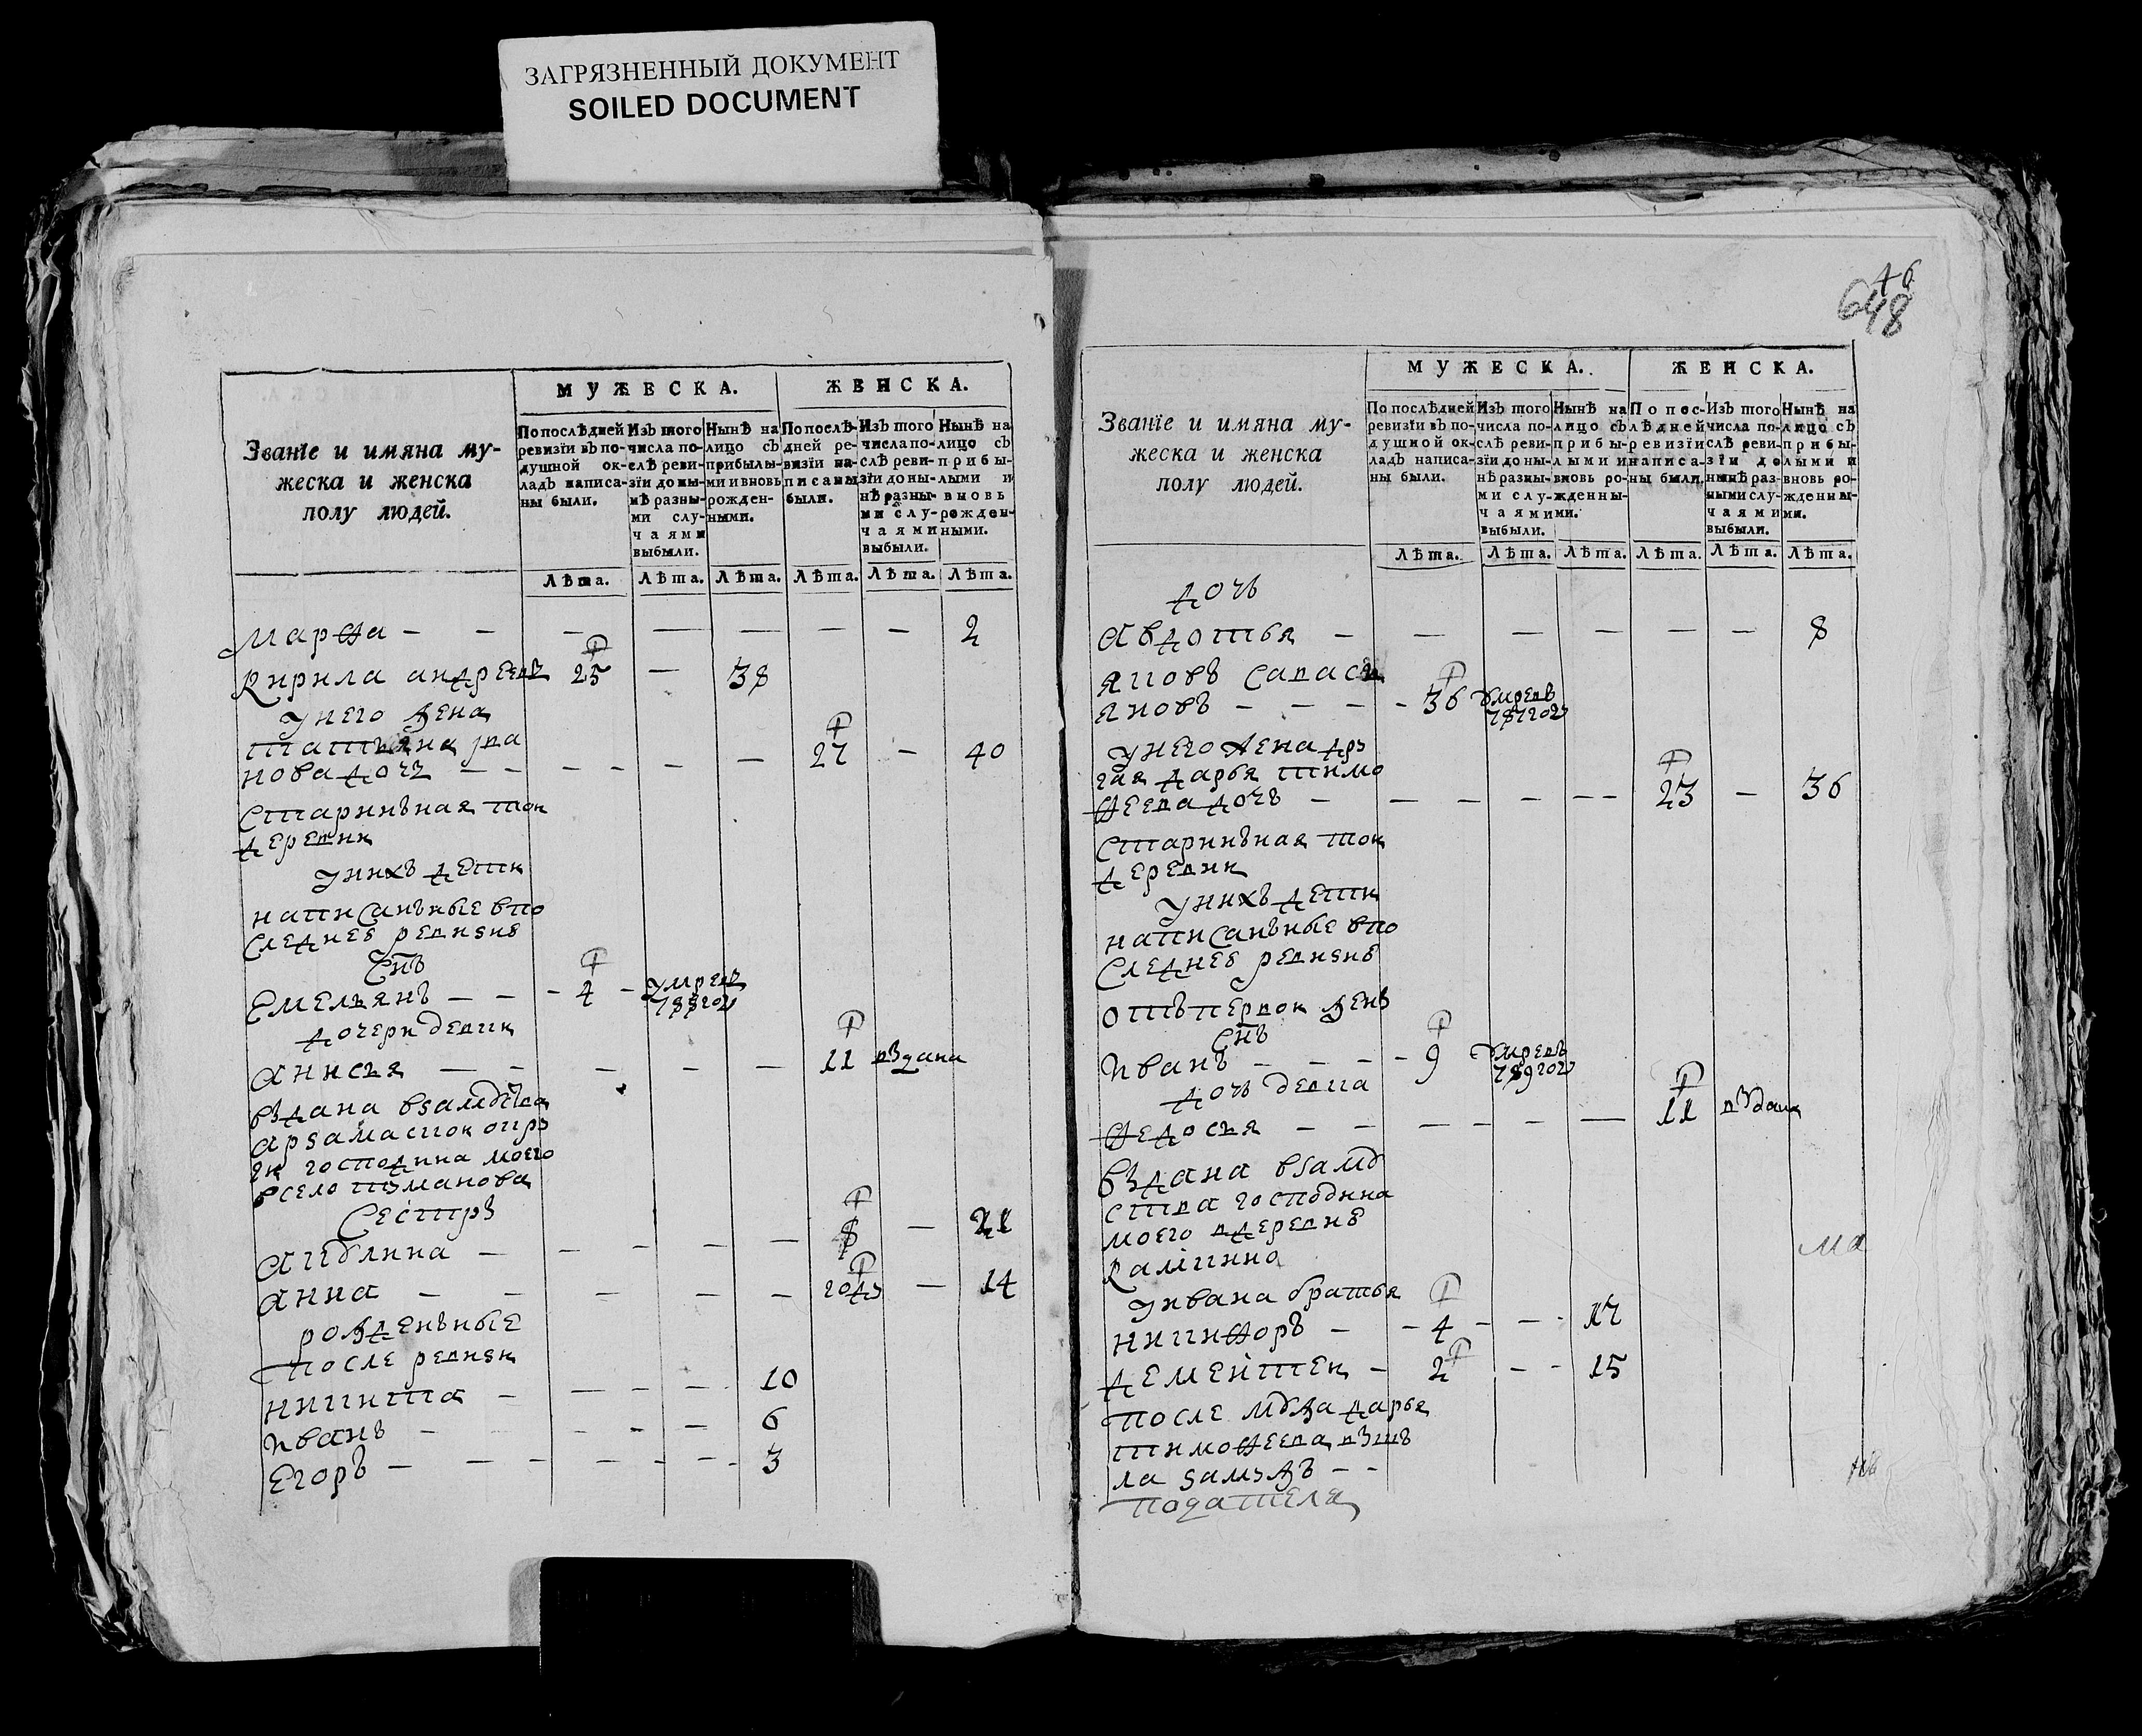 ЗАГРЯЗНЕННЫЙ ДОКУМЕНТ
SOILED DOCUMENT
Званїе и имяна му-
жеска и женска
полу людей.
МУЖЕСКА.
ЖЕНСКА.
По послѣдней
ревизїи въ по-
душной ок-
ладъ написа-
ны были.
Изъ того
числа по-
слѣ реви-
зїи до ны-
нѣ разны-
ми слу-
чаями
выбыли.
Нынѣ на
лицо съ
прибылы-
ми и вновь
рожден-
ными.
По послѣ-
дней ре-
визїи на-
писаны
были.
Изъ того
числа по-
слѣ реви-
зїи до ны-
нѣ разны-
ми слу-
чаями
выбыли.
Нынѣ на
лицо съ
прибы-
лыми и
вновь
рожден-
ными.
Лѣта. Лѣта. Лѣта. Лѣта. Лѣта. Лѣта.
марѳа — — — — — — — 2
кирила андреевъ 25 — 38
унего жена
татьяна
нова дочь — — — — — — 27 — 40
старинъная тои
деревни
унихъ дети
написанъные впо
следнеѣ ревизиѣ
снъ
емельянъ — — - 4 - умреъ
788 год
дочери девки
анисья — — — — — 11 въдана
въдана взамуства
арзамаской округ
ги господина моего
всело туманова
сестръ
акулина — — — — — 8 — 21
анна — — — — — году — 14
рожденъные
после ревизи
никита — — — — 10
иванъ — — — — 6
егоръ — — — — — — 3
46
648
Званїе и имяна му-
жеска и женска
полу людей.
МУЖЕСКА.
ЖЕНСКА.
По послѣдней
ревизїи въ по-
душной ок-
ладъ написа-
ны были.
Изъ того
числа по-
слѣ реви-
зїи до ны-
нѣ разны-
ми слу-
чаями
выбыли.
Нынѣ на
лицо съ
прибы-
лыми и
вновь ро-
жденны-
ми.
По пос-
лѣдней
ревизїи
написа-
ны были.
Изъ того
числа по-
слѣ реви-
зїи до
нынѣ раз-
ными слу-
чаями
выбыли.
Нынѣ на
лицо съ
прибы-
лыми и
вновь ро-
жденны-
ми.
Лѣта. Лѣта. Лѣта. Лѣта. Лѣта. Лѣта.
дочь
авдотья — — — — — — 8
яковъ
яковъ — — — - 36 умревъ
787 году
унего жена дру
гая дарья тимо
ѳеева дочь — — — — — — 23 — 36
старинъная тои
деревни
унихъ дети
написанъные впо
следнеѣ ревизиѣ
отъ первои жены
снъ
иванъ — — — - 9 умревъ
789 году
дочь девка
ѳедосья — — — — — — 11 въдана
въдана взаму
ства господина
моего вдеревнѣ
ма
уивана братья
никиѳоръ — - 4 - — - 17
деменътеи — 2 — - 15
после мужа дарья
тимоѳеева въшъ
ла замужъ — -
подателя